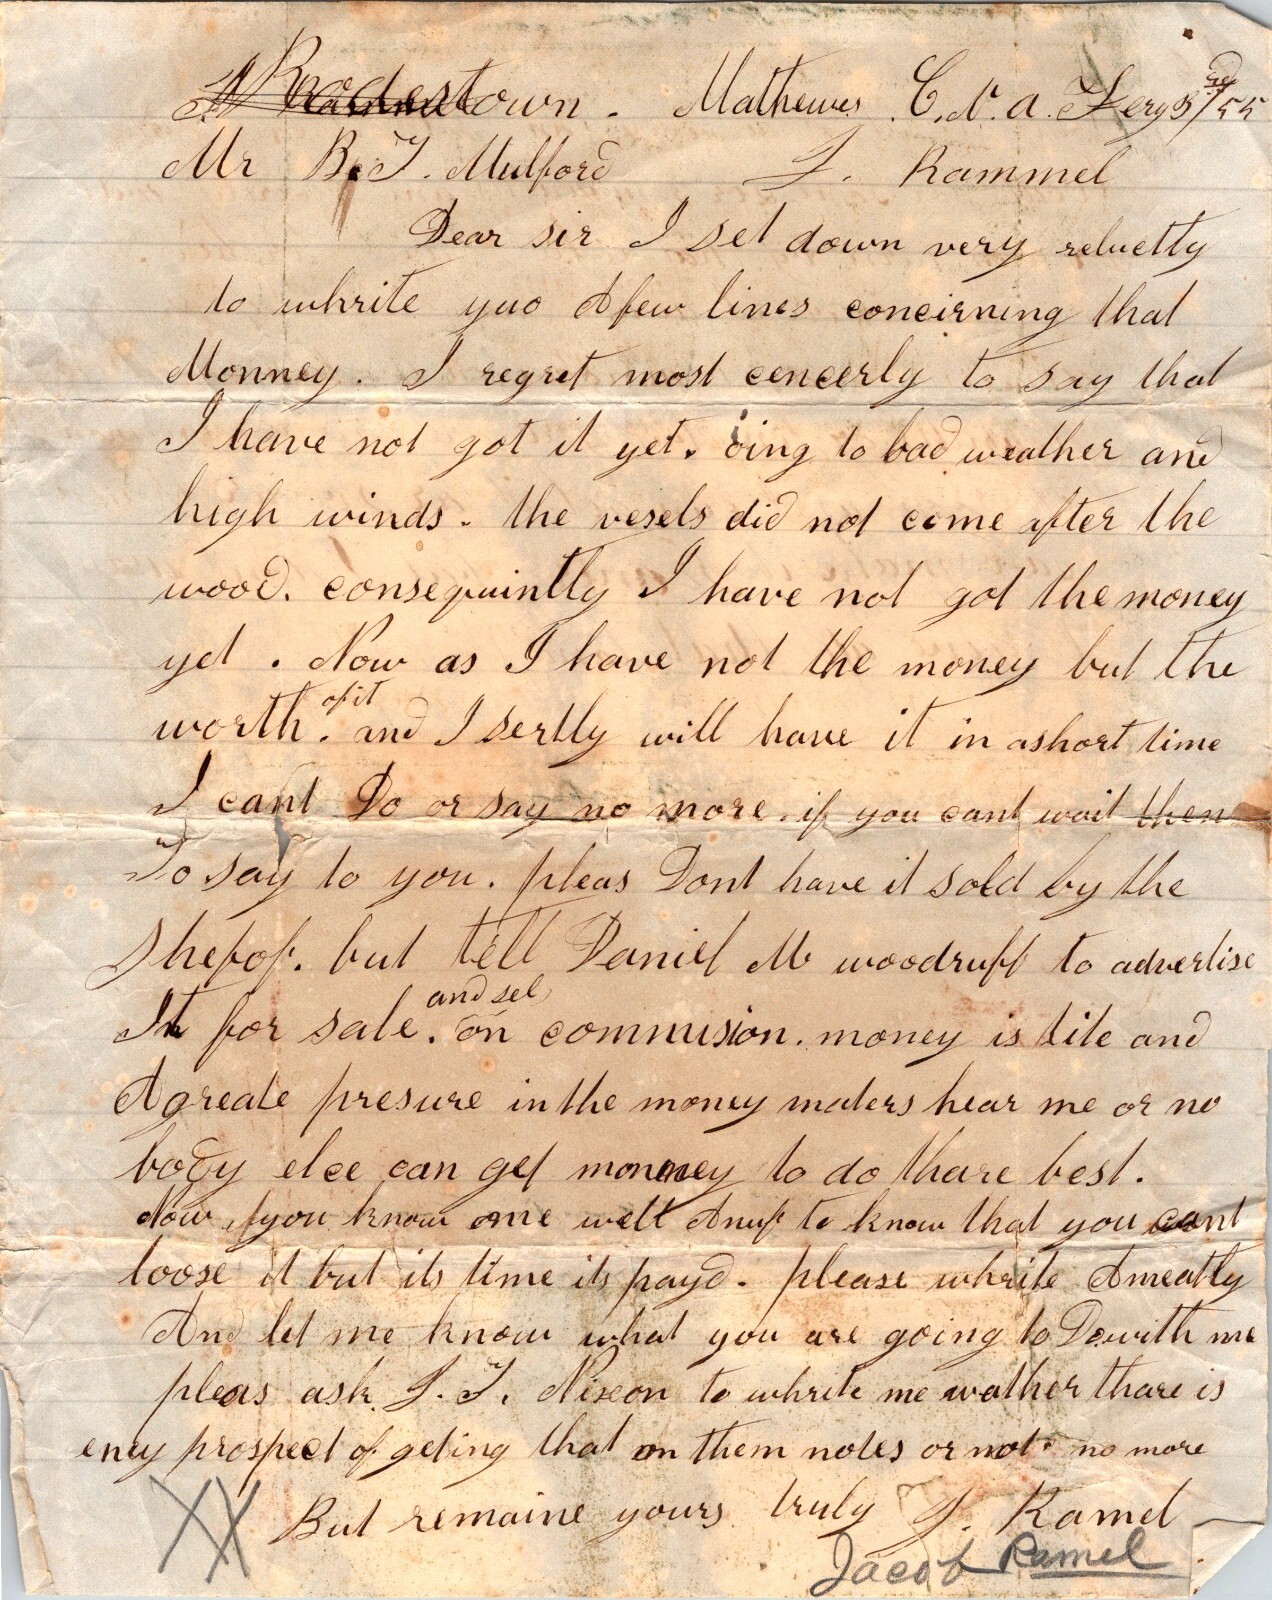 Rhodestown. Mathewes C. V. a. Fery 3rd/55
Mr B. T. Mulford J. Rammel
Dear sir I set down very reluctly
to whrite yuo A few lines concirning that
Monney. I regret most cencerly to say that
I have not got it yet. oing to bad weather and
high winds. the vesels did not come after the
wood. consequintly I have not got the money
yet. Now as I have not the money but the
worth. of it and I sertly will have it in a short time
I cant Do or say no more. if you cant wait then
To say to you. pleas Dont have it sold by the
Shefof. but tell Daniel M woodruff to advertise
It for sale. and sel on commision. money is tite and
A greate presure in the money maters hear me or no
body elce can get monney to do thare best.
Now if you know me well Anuf to know that you cant
loose it but its time its payd. please whrite Ameatly
And let me know what you are going to Do with me
pleas ask J. T. Nixon to whrite me wather thare is
eney prospect of geting that on them notes or not no more
XX But remaine yours truly J. Ramel
Jacob Ramel